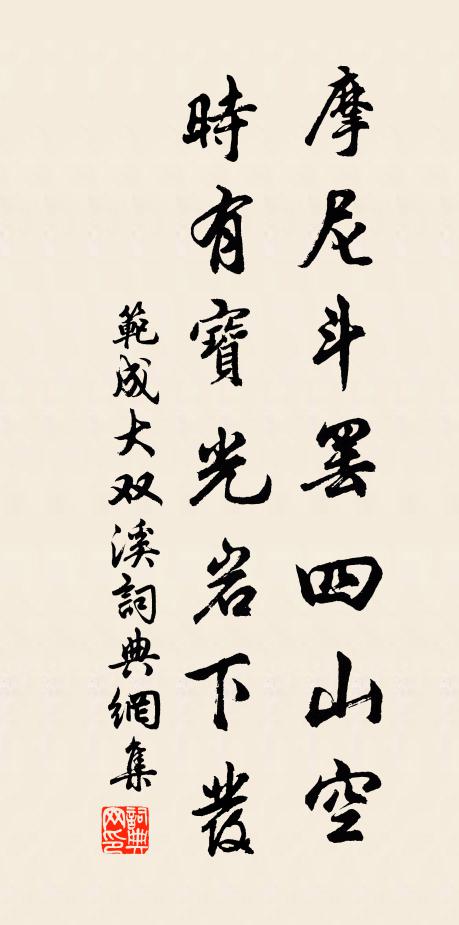 摩尼斗罢四山空
時有寶光岩下發
範成大双溪詞典網集
詞典网印